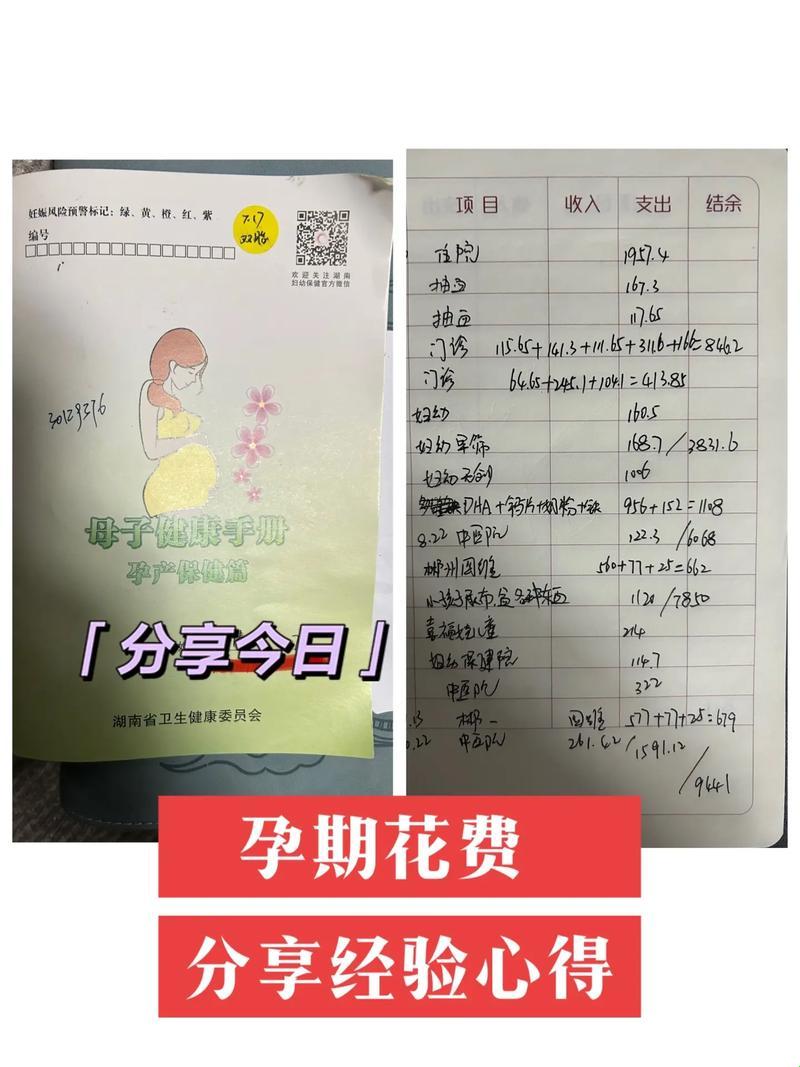 妊娠风险预警标记：绿、黄、橙、红、紫
编号
7.17
双胎
欢迎关注湖南
妇幼保健官方微信
30129376
母子健康手册
孕产保健篇
「分享今日」
湖南省卫生健康委员会
项目 收入 支出 结余
住院 1957.4
抽血 167.3
抽血 117.65
门诊 115.65+141.3+111.65+311.6+166=846.2
门诊 64.65+245.1+104.1=413.85
妇幼 160.5
妇幼早筛 168.7/3831.6
妇幼无创 1006
DHA+钙片+奶粉+铁 956+152=1108
8.22 中医院 122.3/6068
郴州四维 560+77+25=662
小孩子尿布,盆各种东西 1120/7850
喜福 儿童 214
妇幼保健院 114.7
中医院 322
.13 郴一 四维 577+77+25=679
0.22 中医院 261.42/1591.12
/9441
孕期花费
分享经验心得